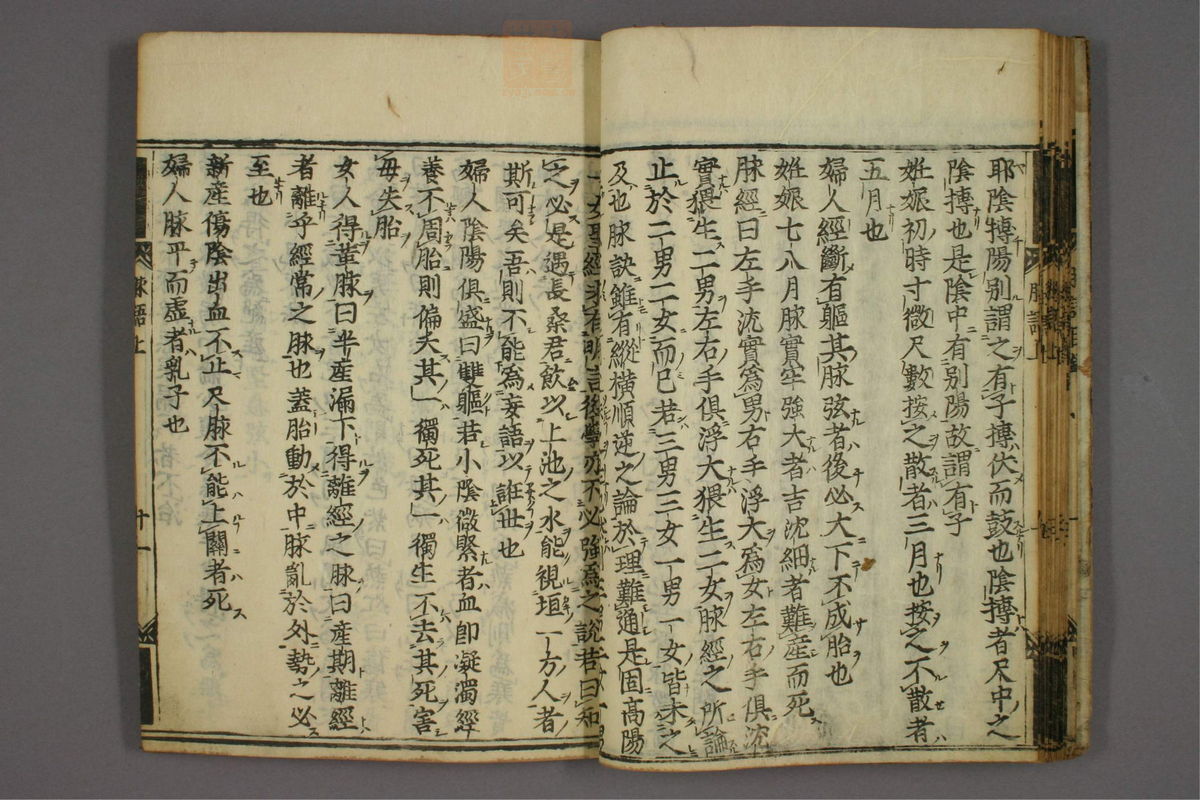 耶陰摶陽別謂之有子摶伏而鼓也陰摶者尺中之
陰摶也是陰中有別陽故謂有子
姙娠初時寸微尺數按之散者三月也按之不散者
五月也
婦人經斷有軀其脉弦者後必大下不成胎也
姙娠七八月脉實牢強大者吉沈細者難産而死
脉經曰左手沈實爲男右手浮大爲女左右手俱沈
實猥生二男左右手俱浮大猥生二女脉經之所論
止於二男二女而已若三男三女一男一女皆未之
及也脉訣雖有縱橫順逆之論於理難通是固高陽
一女聖經未有明言後學亦不必強爲之說若曰知
之必是遇長桑君飲以上池之水能視垣一方人者
斯可矣吾則不能爲妄語以誑世也
婦人陰陽俱盛曰雙軀若小陰微緊者血卽凝濁經
養不周胎則偏夭其一獨死其一獨生不去其死害
母失胎
女人得革脉曰半産漏下得離經之脉曰産期離經
者離乎經常之脉也蓋胎動於中脉亂於外勢之必
至也
新産傷陰出血不止尺脉不能上關者死
婦人脉平而虛者乳子也
脉語上
十一